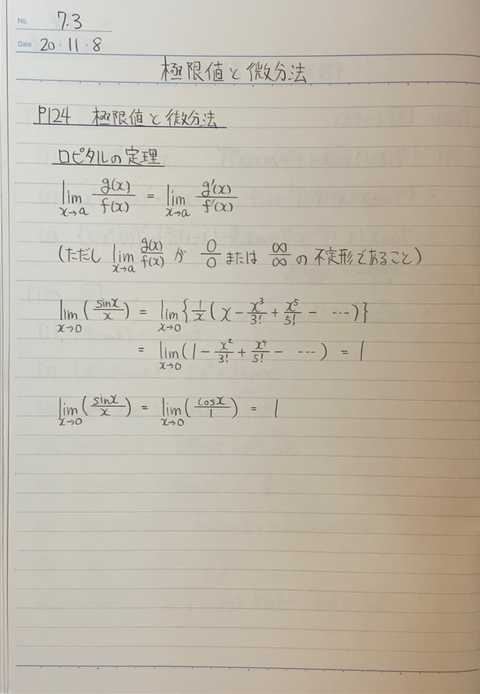 No. 7.3
Date 20・11・8
極限値と微分法
P124 極限値と微分法
ロピタルの定理
lim_{x→a} g(x)/f(x) = lim_{x→a} g'(x)/f'(x)
(ただし lim_{x→a} g(x)/f(x) が 0/0 または ∞/∞ の不定形であること)
lim_{x→0} (sinx/x) = lim_{x→0} {1/x (x - x³/3! + x⁵/5! - ...)}
= lim_{x→0} (1 - x²/3! + x⁴/5! - ...) = 1
lim_{x→0} (sinx/x) = lim_{x→0} (cosx/1) = 1